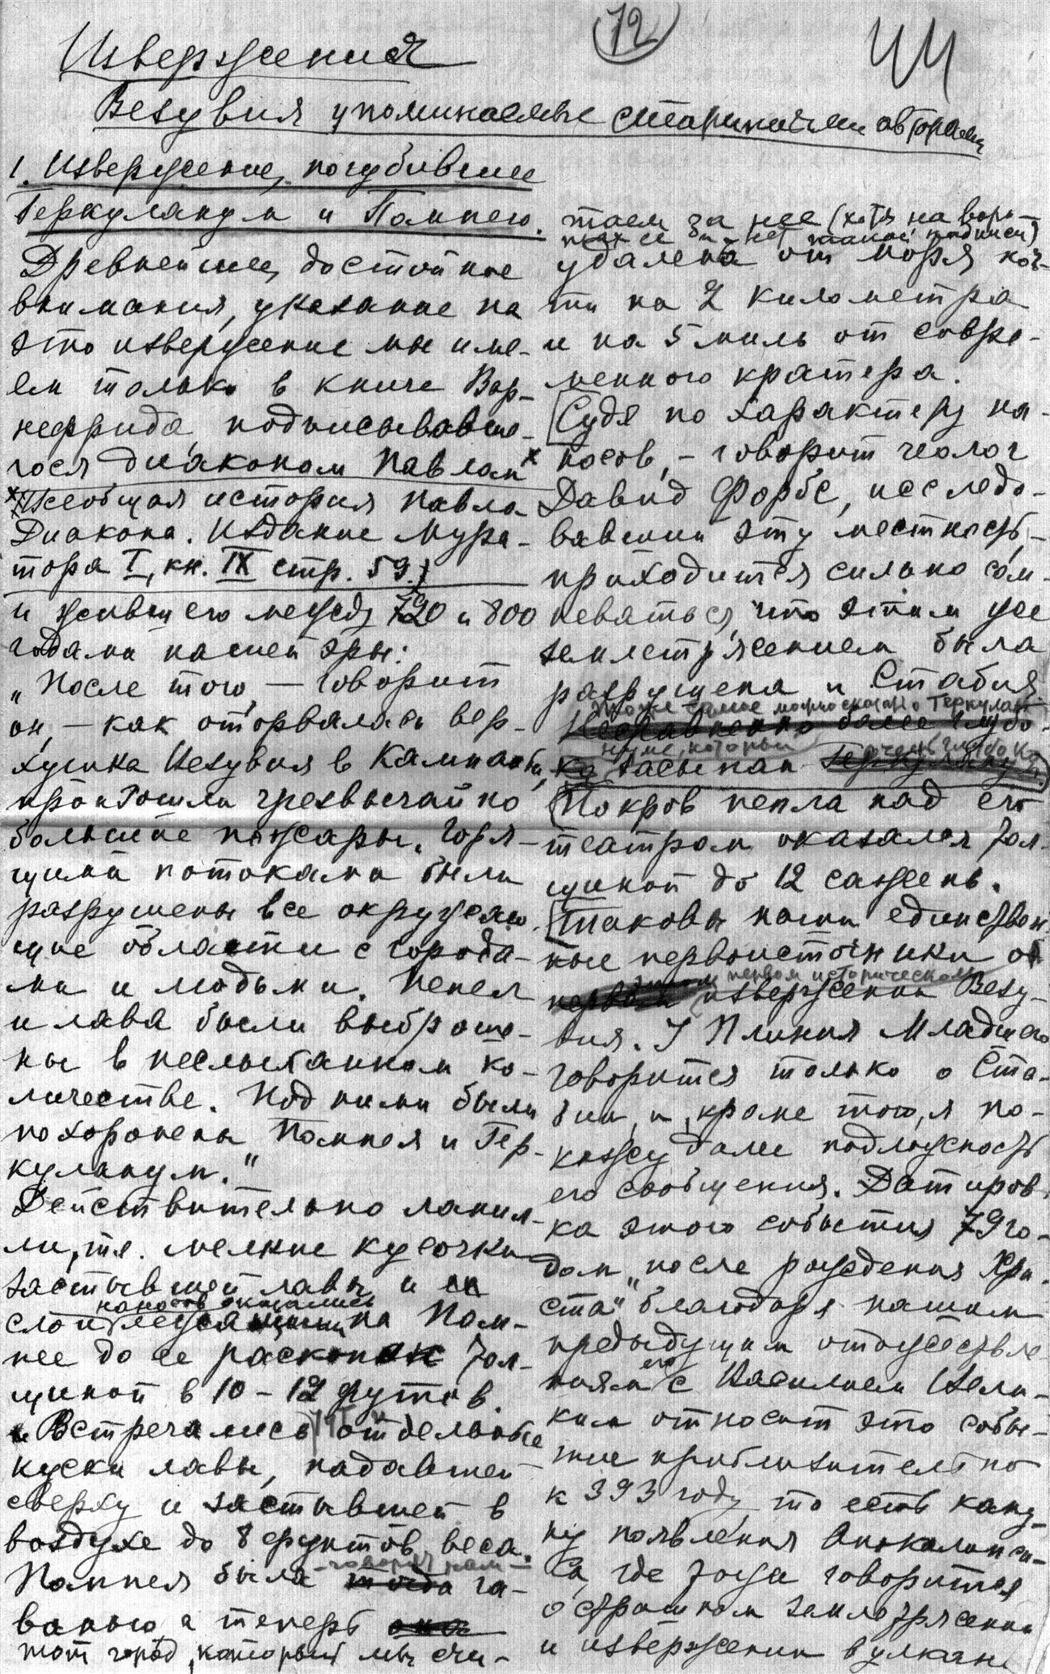 72
44
Извержения
Везувия упоминаемые старинными авторами
1. Извержение, погубившее
Геркуланум и Помпею.
Древнейшее, достойное
внимания, указание на
это извержение мы име-
ем только в книге Вар-
нефрида, подписывавше-
гося диаконом Павлом x
x (Всеобщая история Павла
Диакона. Издание Мура-
тора I, кн. IX стр. 59.)
и жившего между 790 и 800
годами нашей эры:
„После того, — говорит
он, — как оторвалась вер-
хушка Везувия в Кампании,
произошли чрезвычайно
большие пожары. Горя-
щими потоками были
разрушены все окружаю-
щие области с города-
ми и людьми. Пепел
и лава были выброше-
ны в неслыханном ко-
личестве. Под ними были
похоронены Помпея и Гер-
куланум."
Действительно лапил-
ли, т.е. мелкие кусочки
застывшей лавы и
наносов оказались
слой на Пом-
пее до ее раскопок тол-
щиной в 10 – 12 футов.
Встречались и отдельные
куски лавы, падавшей
сверху и застывшей в
воздухе до 8 фунтов веса.
Помпея была – говорят нам – га-
ванью, а теперь
тот город, который мы счи-
таем за нее (хотя на воро-
тах ее и нет такой надписи)
удалена от моря поч-
ти на 2 километра
и на 5 миль от совре-
менного кратера.
Судя по характеру на-
носов, – говорит геолог
Давид Форбс, исследо-
вавший эту местность, –
приходится сильно сом-
неваться, что этим же
землетрясением была
разрушена и Стабия.
То же самое можно сказать о Геркула-
нуме, который очень глубоко
засыпан
Покров пепла над его
театром оказался тол-
щиной до 12 сажень.
Таковы наши единствен-
ные первоисточники об
этом первом историческом
извержении Везу-
вия. У Плиния Младшего
говорится только о Ста-
бии, и, кроме того, я по-
кажу далее подложность
его сообщения. Датиров-
ка этого события 79 го-
дом „после рождения Хри-
ста" благодаря нашим
предыдущим отожествле-
ниям его с Василием Вели-
ким относит это собы-
тие приблизительно
к 393 году, то есть кану-
ну появления Апокалипси-
са, где тоже говорится
о страшном землетрясении
и извержении вулкана